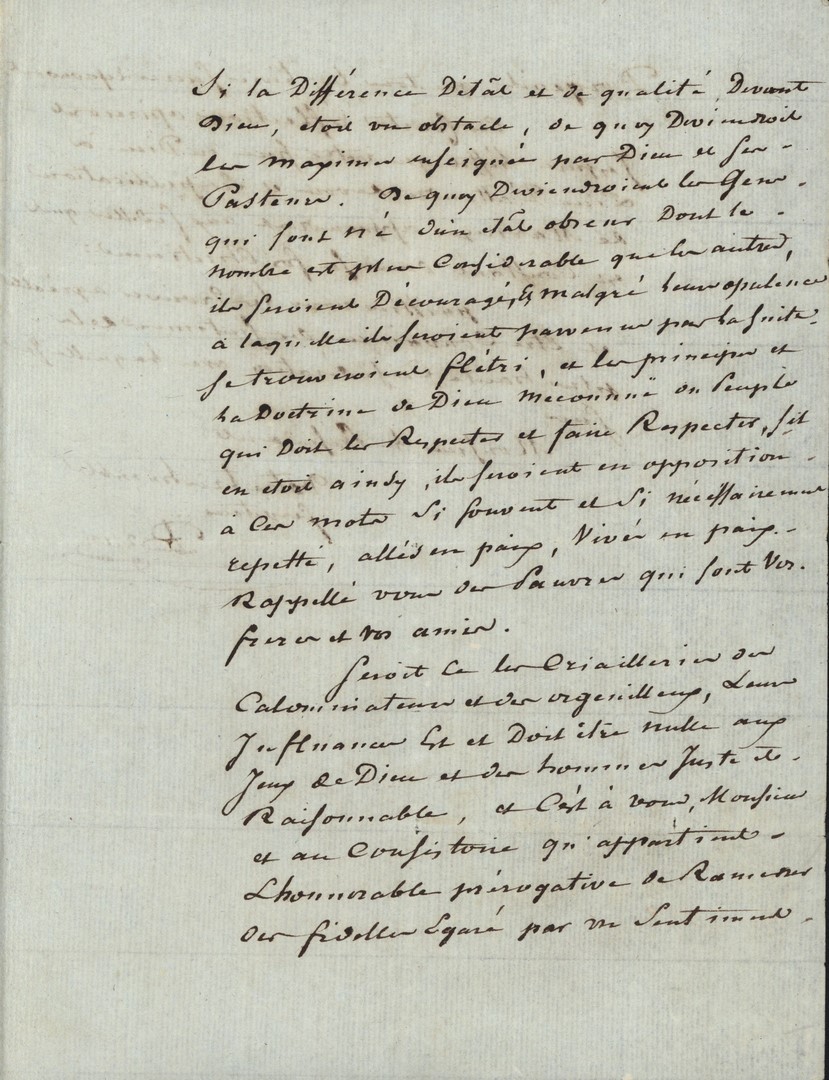 Si la Différence D'étât et de qualité, Devant
Dieu, etoit un obstacle, de quoy Deviendroit
les maximes enseignée par Dieu et ses
Pasteurs. De quoy Deviendroient les Gens
qui sont né d'un etât obscur Dont le
nombre est plus Considerable que les autres,
ils seroient Découragé, Et malgré leurs opulence
à laquelle ils seroient parvenus par la suite
se trouveroient flétri, et les principes et
La Doctrine de Dieu méconnüe du Peuple
qui Doit les Respecter et faire Respecter, s'il
en etoit ainsy, ils seroient en opposition
à Ces mots si souvent et si nécessairement
repetté, allés en paix, Vivés en paix.
Rappellé vous des Pauvres qui sont Vos
freres et vos amis.
Seroit Ce les Criailleries des
Calomniateurs et des orgeuilleux, Leurs
Influances Est et Doit être nulle aux
Jeux de Dieu et des hommes Juste et
Raisonnable, et C'est à vous, Monsieur
et au Consistoire qu'appartient
L'honnorable prérogative de Ramener
des fidelles Egaré par un Sentiment